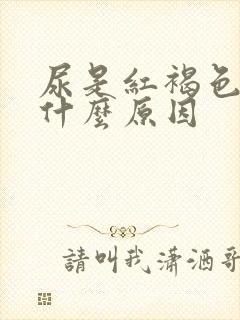 尿是紅褐色
什麼原因
請叫我瀟洒哥